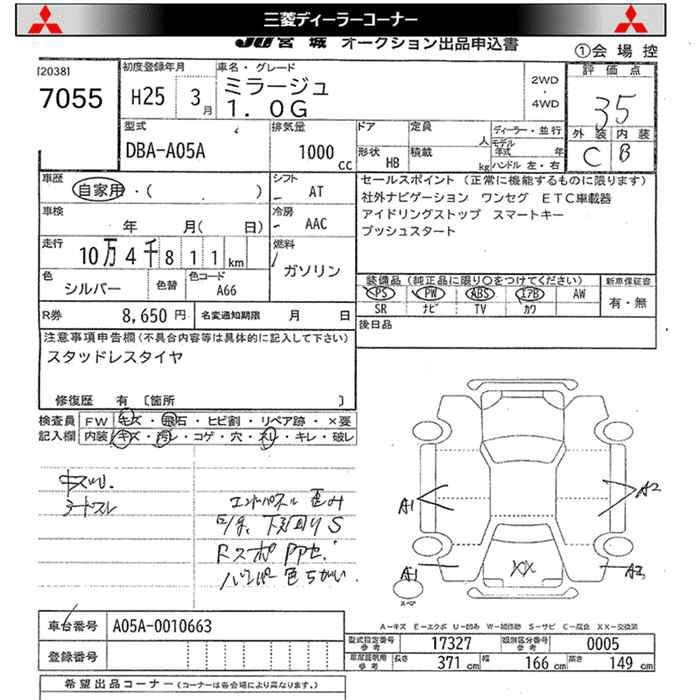 三菱ディーラーコーナー
JU宮城 オークション出品申込書
①会場控
[2038]
7055
初度登録年月
H25 3月
車名・グレード
ミラージュ
1.0G
2WD
・
4WD
評価点
35
外装 内装
C B
型式
DBA-A05A
排気量
1000 CC
ドア
形状 HB
定員 人
積載 kg
ディーラー・並行
モデル年式 年
ハンドル 左・右
車歴
自家用・( )
シフト AT
車検
年 月( 日)
冷房 AAC
走行
10万4千811km
燃料
ガソリン
色
シルバー
色替
色コード
A66
R券 8,650円
名変通知期限 月 日
セールスポイント (正常に機能するものに限ります)
社外ナビゲーション ワンセグ ETC車載器
アイドリングストップ スマートキー
プッシュスタート
装備品(純正品に限り○をつけてください)
PS PW ABS エアB AW
SR ナビ TV カワ
新車保証書
有・無
後日品
注意事項申告欄(不具合内容等は具体的に記入して下さい)
スタッドレスタイヤ
修復歴 有 〔箇所 〕
検査員記入欄
FW キズ・飛石・ヒビ割・リペア跡・×要
内装 キズ・汚レ・コゲ・穴・ネレ・キレ・破レ
エンドパネル 歪み
下回りS
Rスポ
バンパー 色ちがい
A1
A2
A1
A2
XX
スペア
A-キズ E-エクボ U-凹み W-補修跡 S-サビ C-腐食 XX-交換済
車台番号 A05A-0010663
登録番号
型式指定番号 参考 17327
類別区分番号 参考 0005
車庫証明用 参考 長さ 371cm 幅 166cm 高さ 149cm
希望出品コーナー(コーナーは各会場により異なります。)